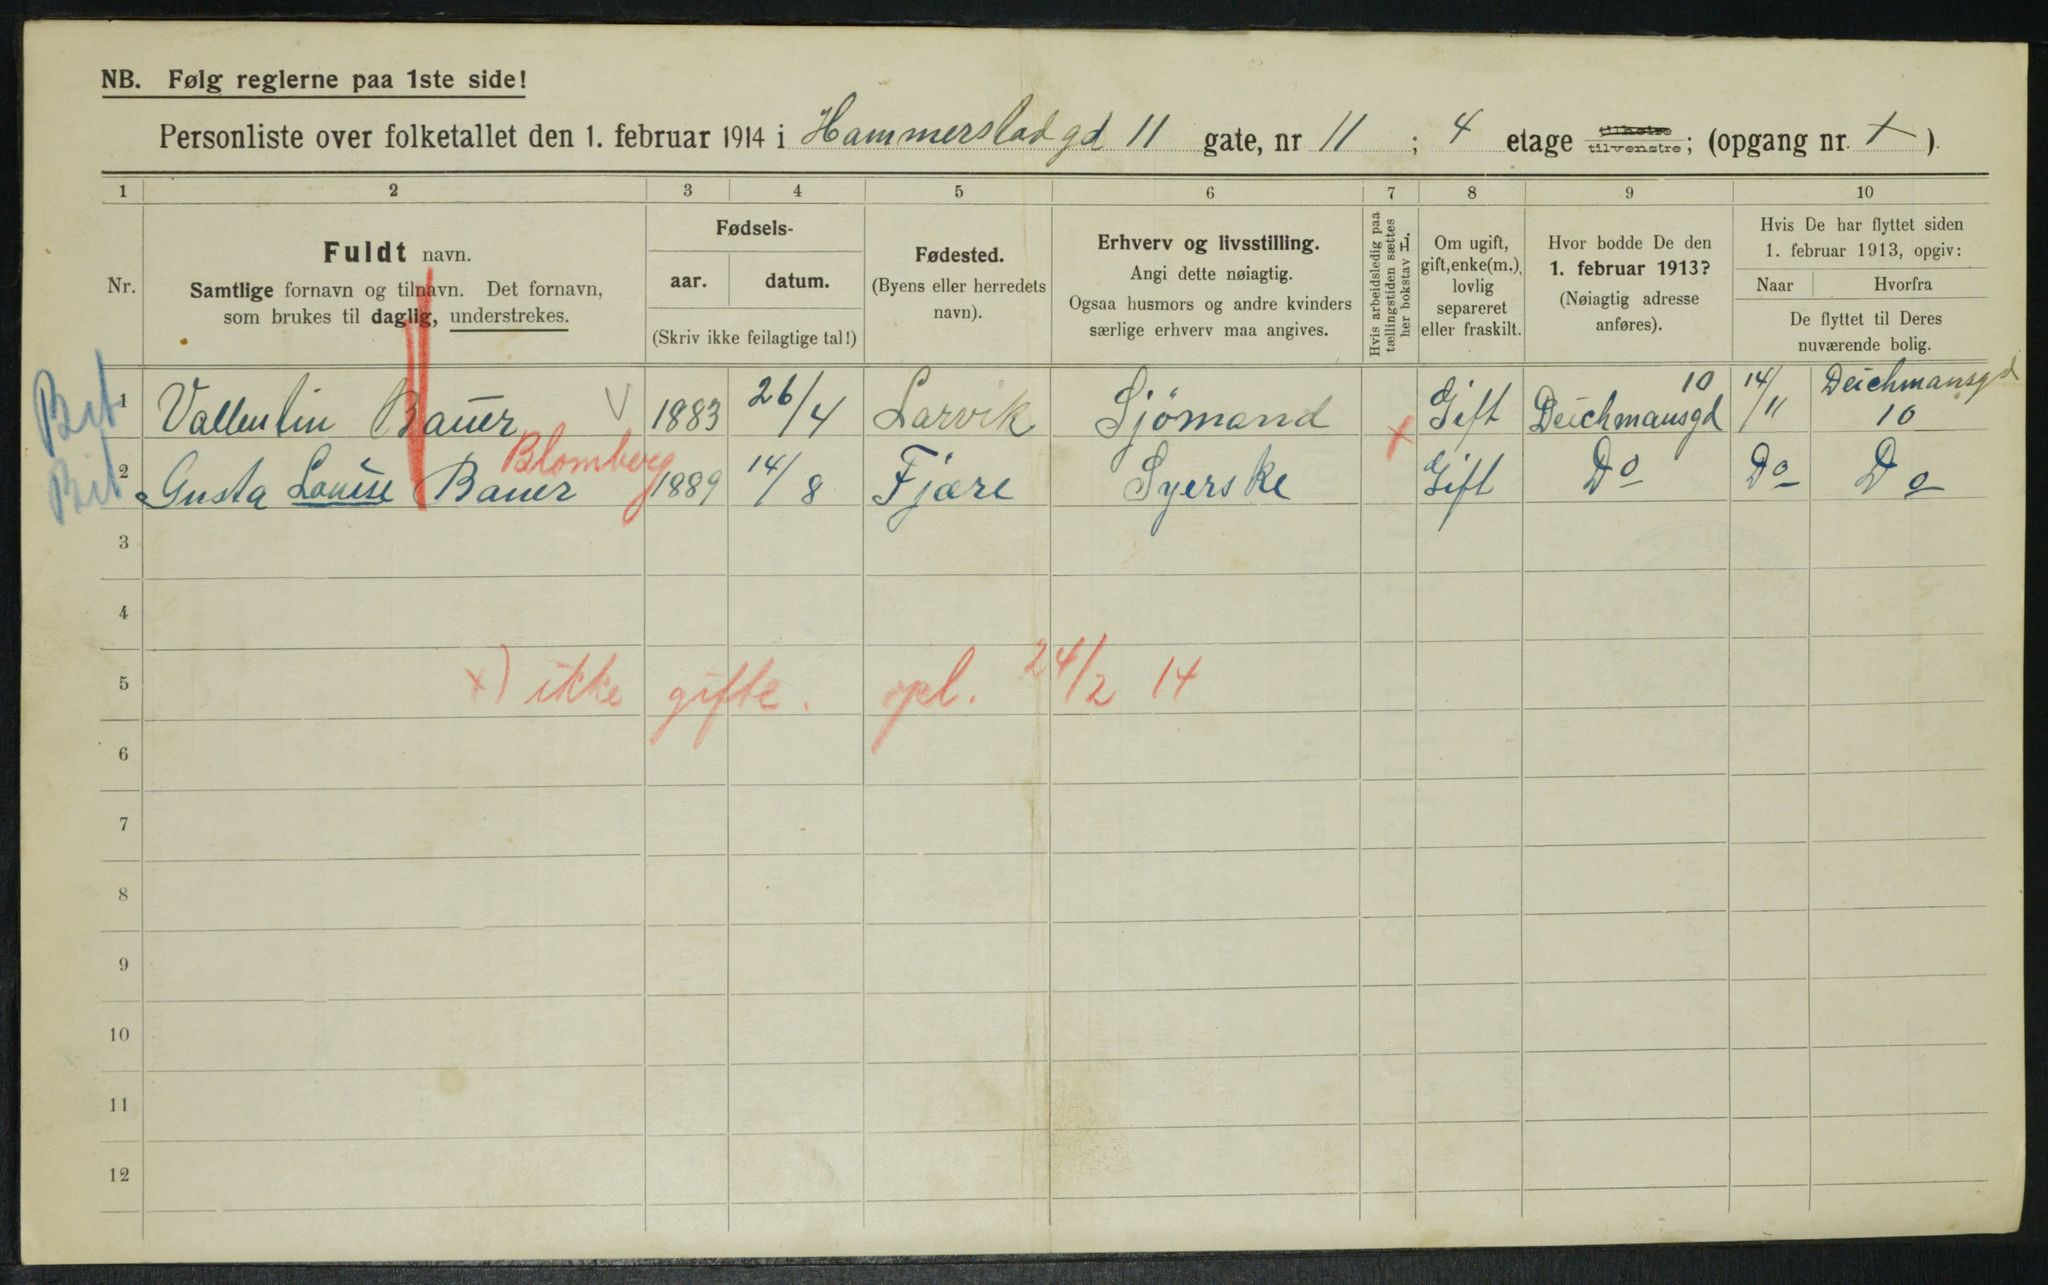 NB. Følg reglerne paa 1ste side!
Personliste over folketallet den 1. februar 1914 i Hammerstad gd 11 gate, nr 11 ; 4 etage tilhøire tilvenstre; (opgang nr. 1 ).
1 2 3 4 5 6 7 8 9 10
Nr.
Fuldt navn.
Samtlige fornavn og tilnavn. Det fornavn,
som brukes til daglig, understrekes.
Fødsels-
aar. datum.
(Skriv ikke feilagtige tal!)
Fødested.
(Byens eller herredets
navn).
Erhverv og livsstilling.
Angi dette nøiagtig.
Ogsaa husmors og andre kvinders
særlige erhverv maa angives.
Hvis arbeidsledig paa
tællingstiden sættes
her bokstav L.
Om ugift,
gift, enke(m.),
lovlig
separeret
eller fraskilt.
Hvor bodde De den
1. februar 1913?
(Nøiagtig adresse
anføres).
Hvis De har flyttet siden
1. februar 1913, opgiv:
Naar Hvorfra
De flyttet til Deres
nuværende bolig.
Bit 1 Vallentin Bauer V 1883 26/4 Larvik Sjömand Gift Deichmansgd 10 14/11 Deichmansgd 10
Blomberg
Bit 2 Gusta Louise Bauer 1889 14/8 Fjære Syerske x Gift Do Do Do
3
4
5 x) ikke gifte. opl. 24/2 14
6
7
8
9
10
11
12